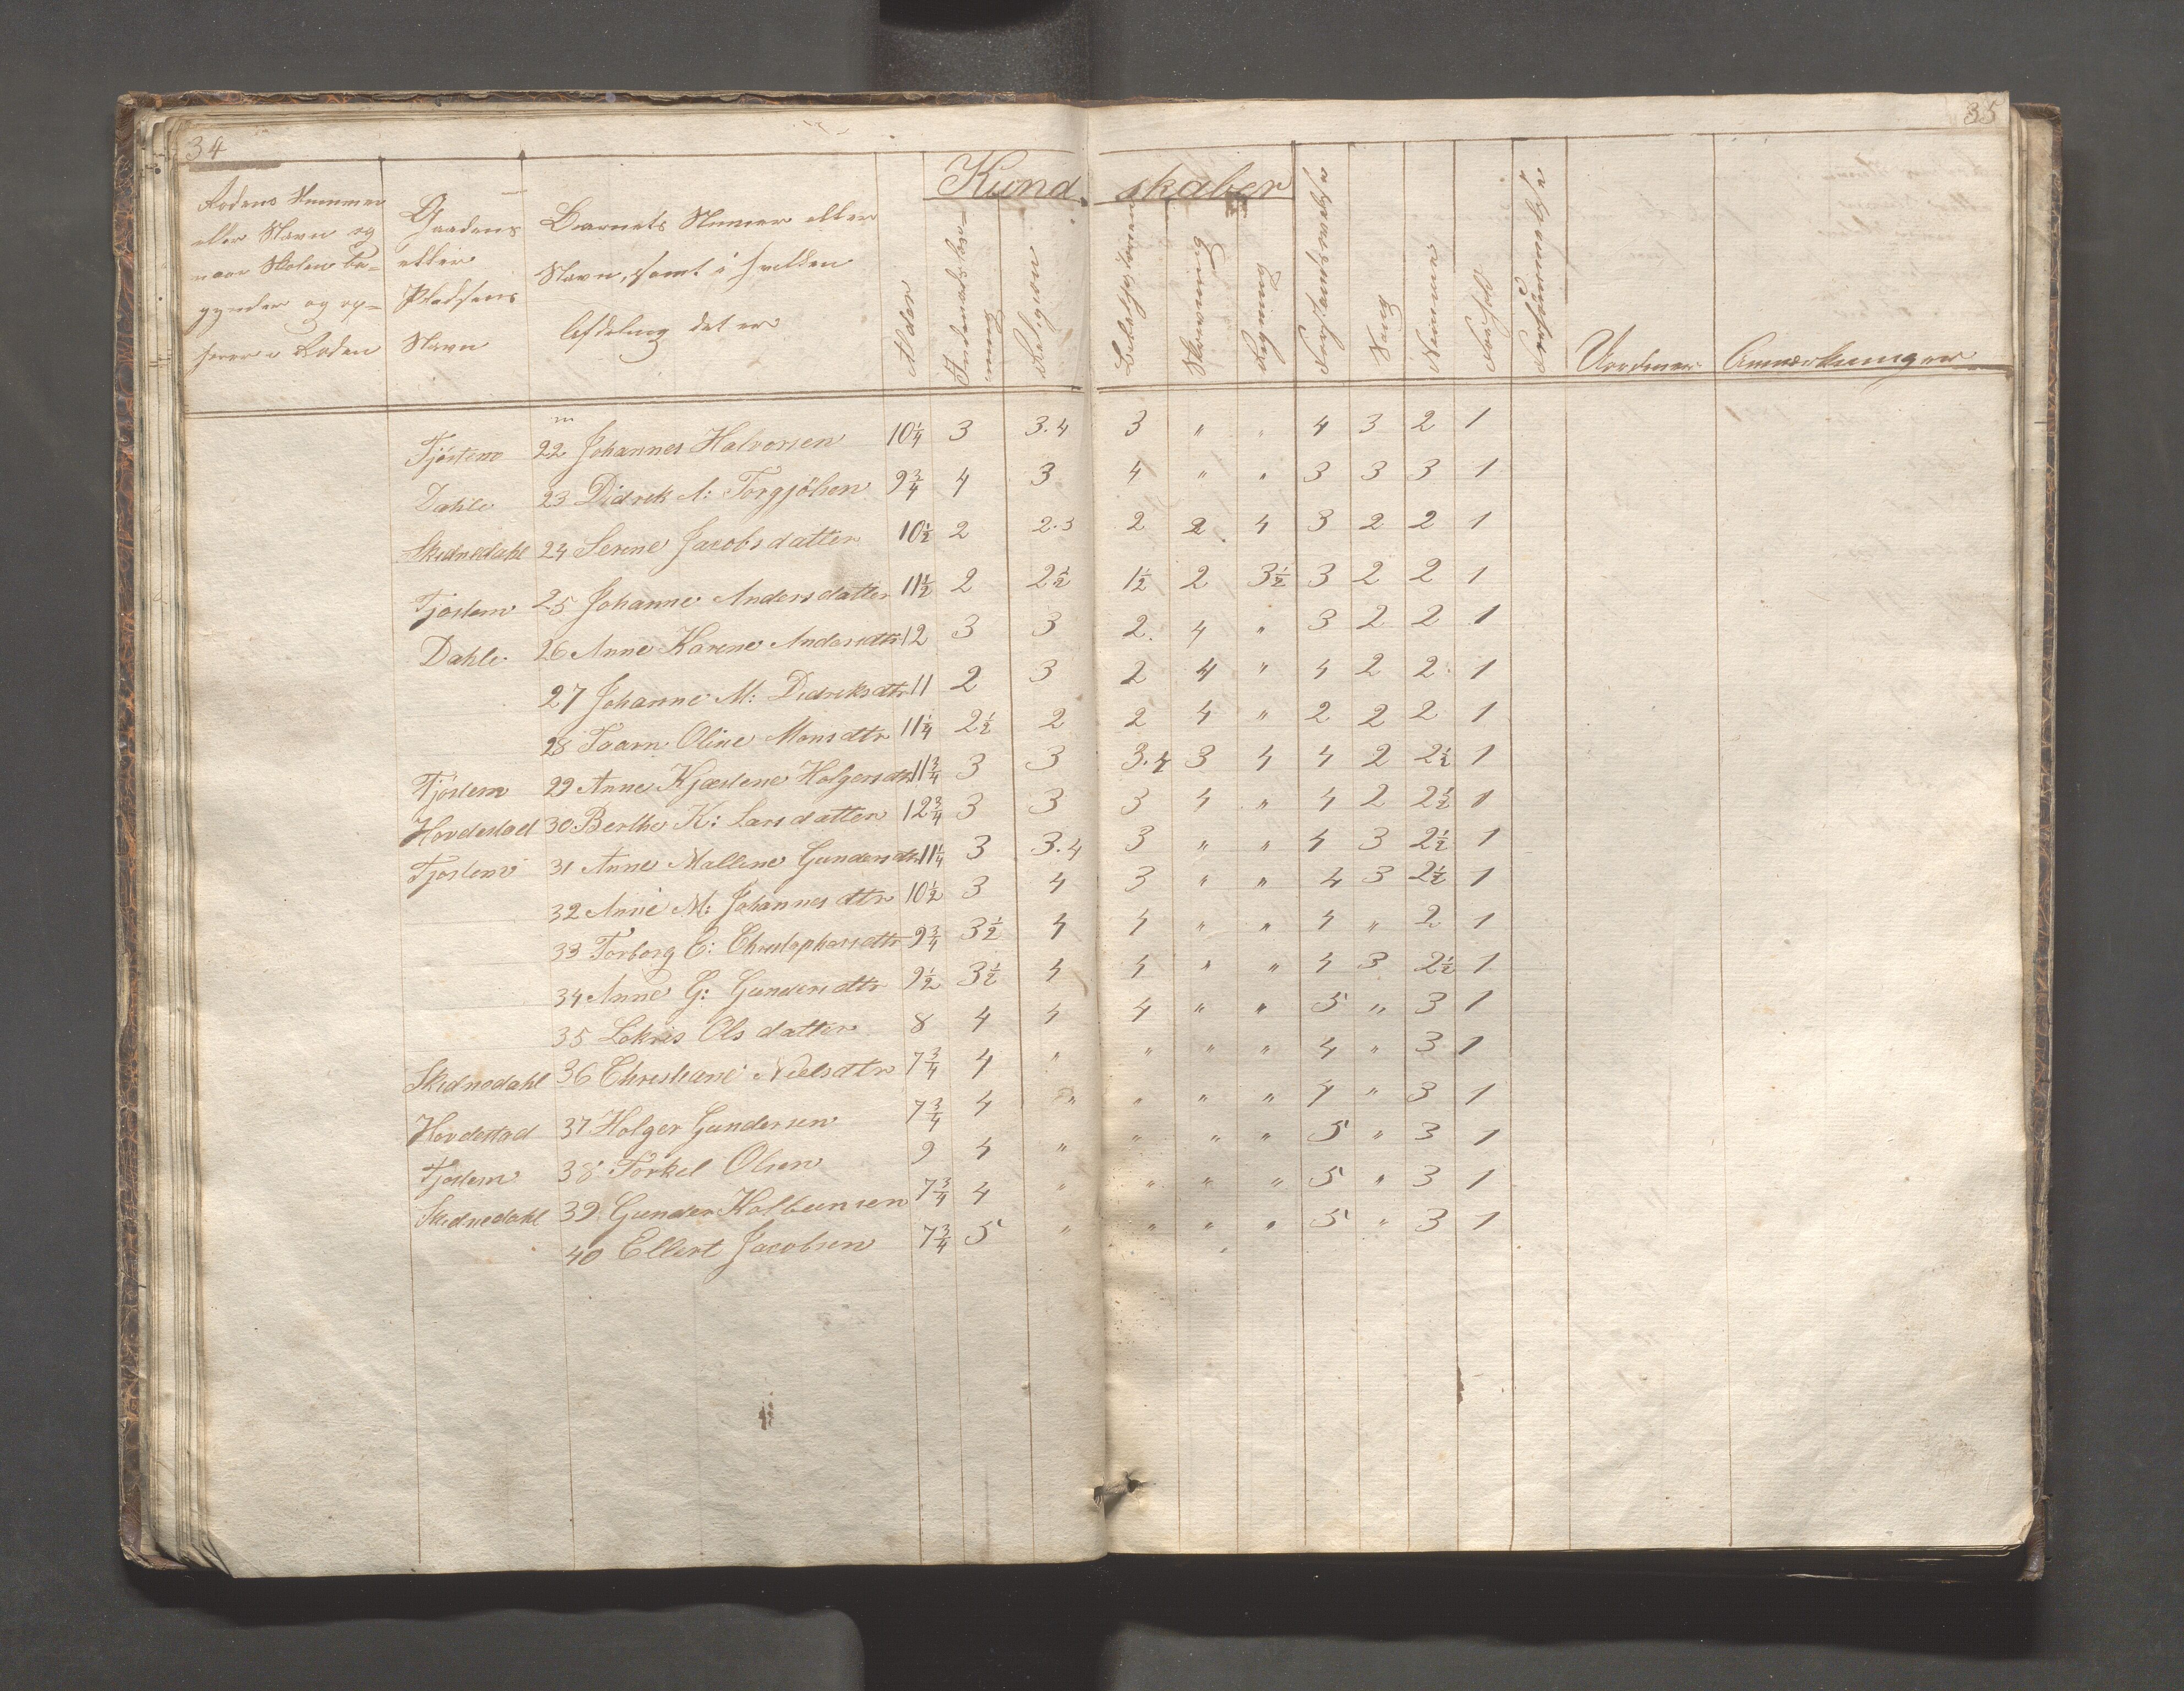 34
35
Kund skaber
Rodens Nummer eller Navn og naar Skolen be- gynder og op- hører i Roden
Gaardens eller Pladsens Navn
Barnets Numer eller Navn, samt i hvilken Afdeling det er
Alder
Indenadslæs- ning
Religion
Skrivning
Regning
Forstandsøvelse
Sang
Nemme
Forhold
Forsømmelse
Anmærkninger
m
Tjöstem 22 Johannes Halvorsen 10 1/4 3 3.4 3 " " 4 3 2 1
Dahle 23 Didrek A: Torgjölsen 9 3/4 4 3 4 " " 3 3 3 1
Skednedahl 24 Serene Jacobsdatter 10 1/2 2 2.3 2 2 4 3 2 2 1
Tjöstem 25 Johanne Andersdatter 11 1/2 2 2 1/2 1 1/2 2 3 1/2 3 2 2 1
Dahle 26 Anne Karene Andersdtr 12 3 3 2 4 " 3 2 2 1
27 Johanne M: Didreksdtr 11 2 3 2 4 " 4 2 2 1
28 Taarn Oline Monsdtr 11 1/4 2 1/2 2 2 4 " 2 2 2 1
Tjöstem 29 Anne Kjæstene Holgersdtr 11 3/4 3 3 3.4 3 4 4 2 2 1/2 1
Hovdestad 30 Berthe K: Larsdatter 12 3/4 3 3 3 4 " 4 2 2 1/2 1
Tjöstem 31 Anne Mallene Gundersdtr 11 1/4 3 3.4 3 " " 4 3 2 1/2 1
32 Anne M: Johannesdtr 10 1/2 3 4 3 " " 4 3 2 1/2 1
33 Torborg C: Christophersdtr 9 3/4 3 1/2 4 4 " " 4 " 2 1
34 Anne G: Gundersdtr 9 1/2 3 1/2 4 4 " " 4 3 2 1/2 1
35 Lokris Olsdatter 8 4 4 4 " " 5 " 3 1
Skednedahl 36 Christiane Nielsdtr 7 3/4 4 " " " " 4 " 3 1
Hovdestad 37 Holger Gundersen 7 3/4 4 " " " " 4 " 3 1
Tjöstem 38 Torkel Olsen 9 4 " " " " 5 " 3 1
Skednedahl 39 Gunder Kolbeunsen 7 3/4 4 " " " " 5 " 3 1
40 Ellert Jacobsen 7 3/4 5 " " " " 5 " 3 1